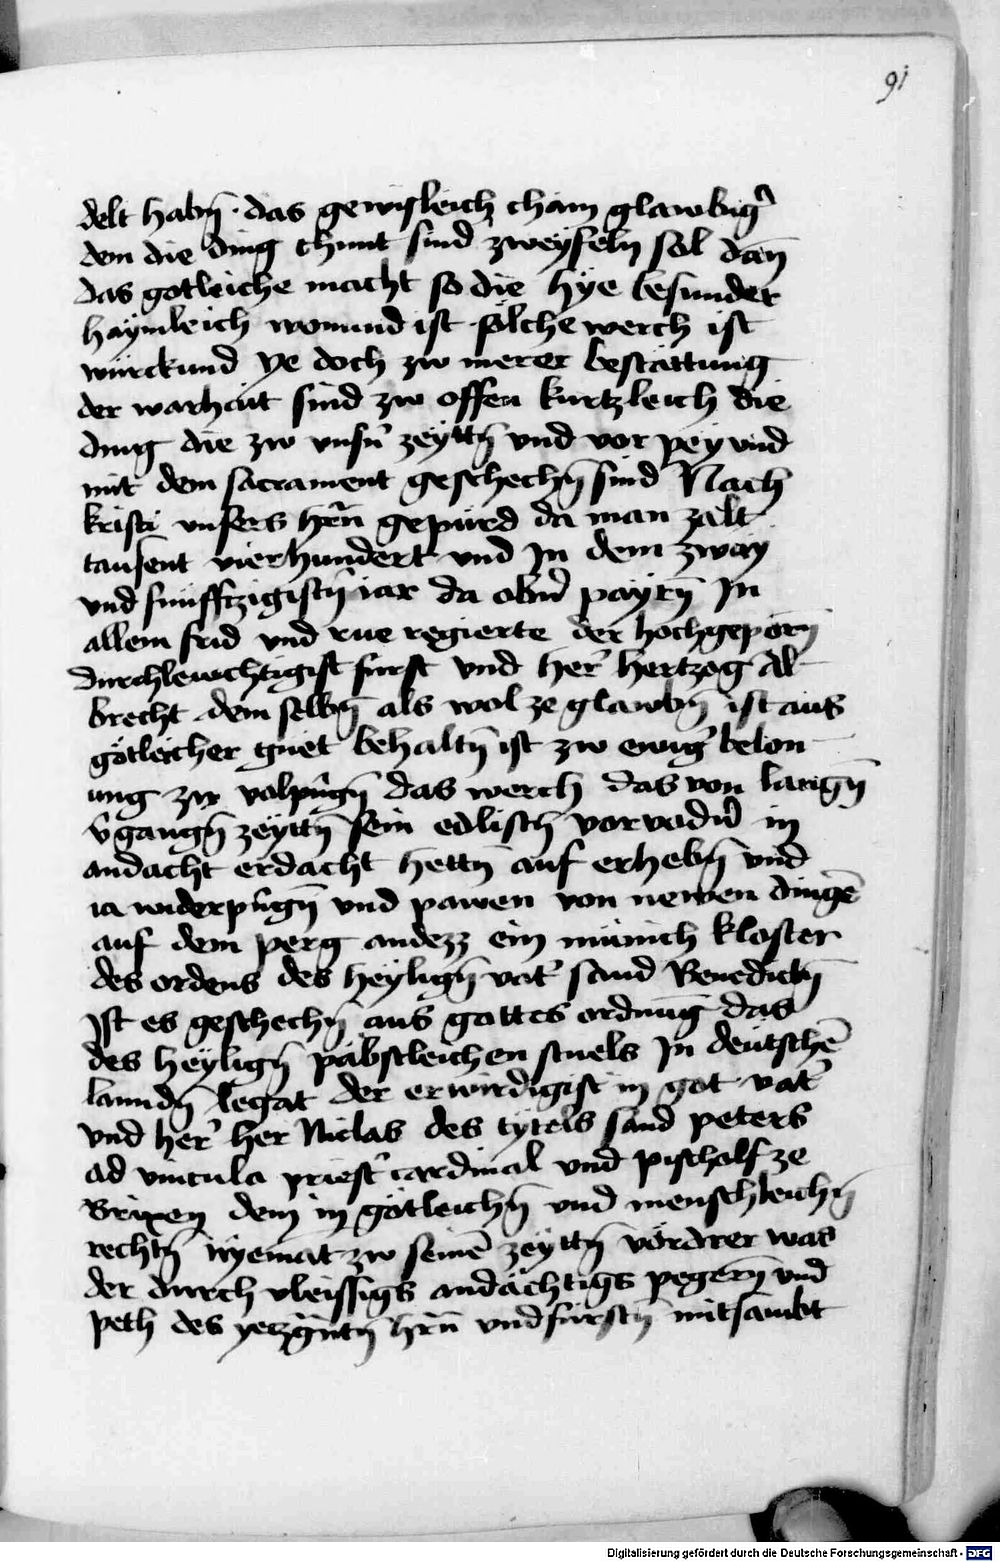 91
delt habn̄ · das gewisleich chain glawbig᷑
dem die ding chunt sind zweyfeln sol dan̄
das gotleiche macht so die hye besunder
haymleich wonund ist sölche werch ist
würckund ye doch zw merer bestättung
der warhait sind zw offen kurtzleich die
ding die zw vnsn᷑ zeyttn̄ vnd vor pey vnd
mit dem sacrament geschechn̄ sind Nach
kristi vnsers hr̄n gepurd da man zalt
tausent vierhundert vnd Jn dem zway
vnd funfftzigistn̄ iar da obn᷑ payrn̄ Jn
allem frid vnd rue regierte der hochgeporn̄
durchlewchtigist furst vnd her᷑ hertzog Al
brecht dem selbn̄ als wol ze glawbn̄ ist aus
götleicher guet behaltn̄ ist zw ewig᷑ belon
ung zw volpri̇gn̄ das werch das von langn̄
v᷑gangn̄ zeyttn̄ sein edlisch vorvadn᷑ in
andacht erdacht hettn̄ auf erhebn̄ vnd
ia widerpri̇gn̄ vnd pawen von newen dingē
auf dem perg andezz ein münich kloster
des ordens des heylign̄ vat᷑ sand Benedictn̄
Jst es geschechn̄ aus gottes ordnung das
des heylign̄ päbstleichen stuels Jn deutschē
lanndn̄ legat der erwirdigist in got vat᷑
vnd her᷑ her Niclas des tytels sand peters
ad vincula priest᷑ cardinal vnd pischolf ze
Brixen dem in götleichn̄ vnd menschleichn̄
rechtn̄ nyemāt zw seinē zeyttn̄ vördrer was
der durch vleissigs andächtigs pegern̄ vnd
peth des yezgn̄tn̄ hr̄n vnd furstn̄ mitsambt
Digitalisierung gefördert durch die Deutsche Forschungsgemeinschaft - DFG